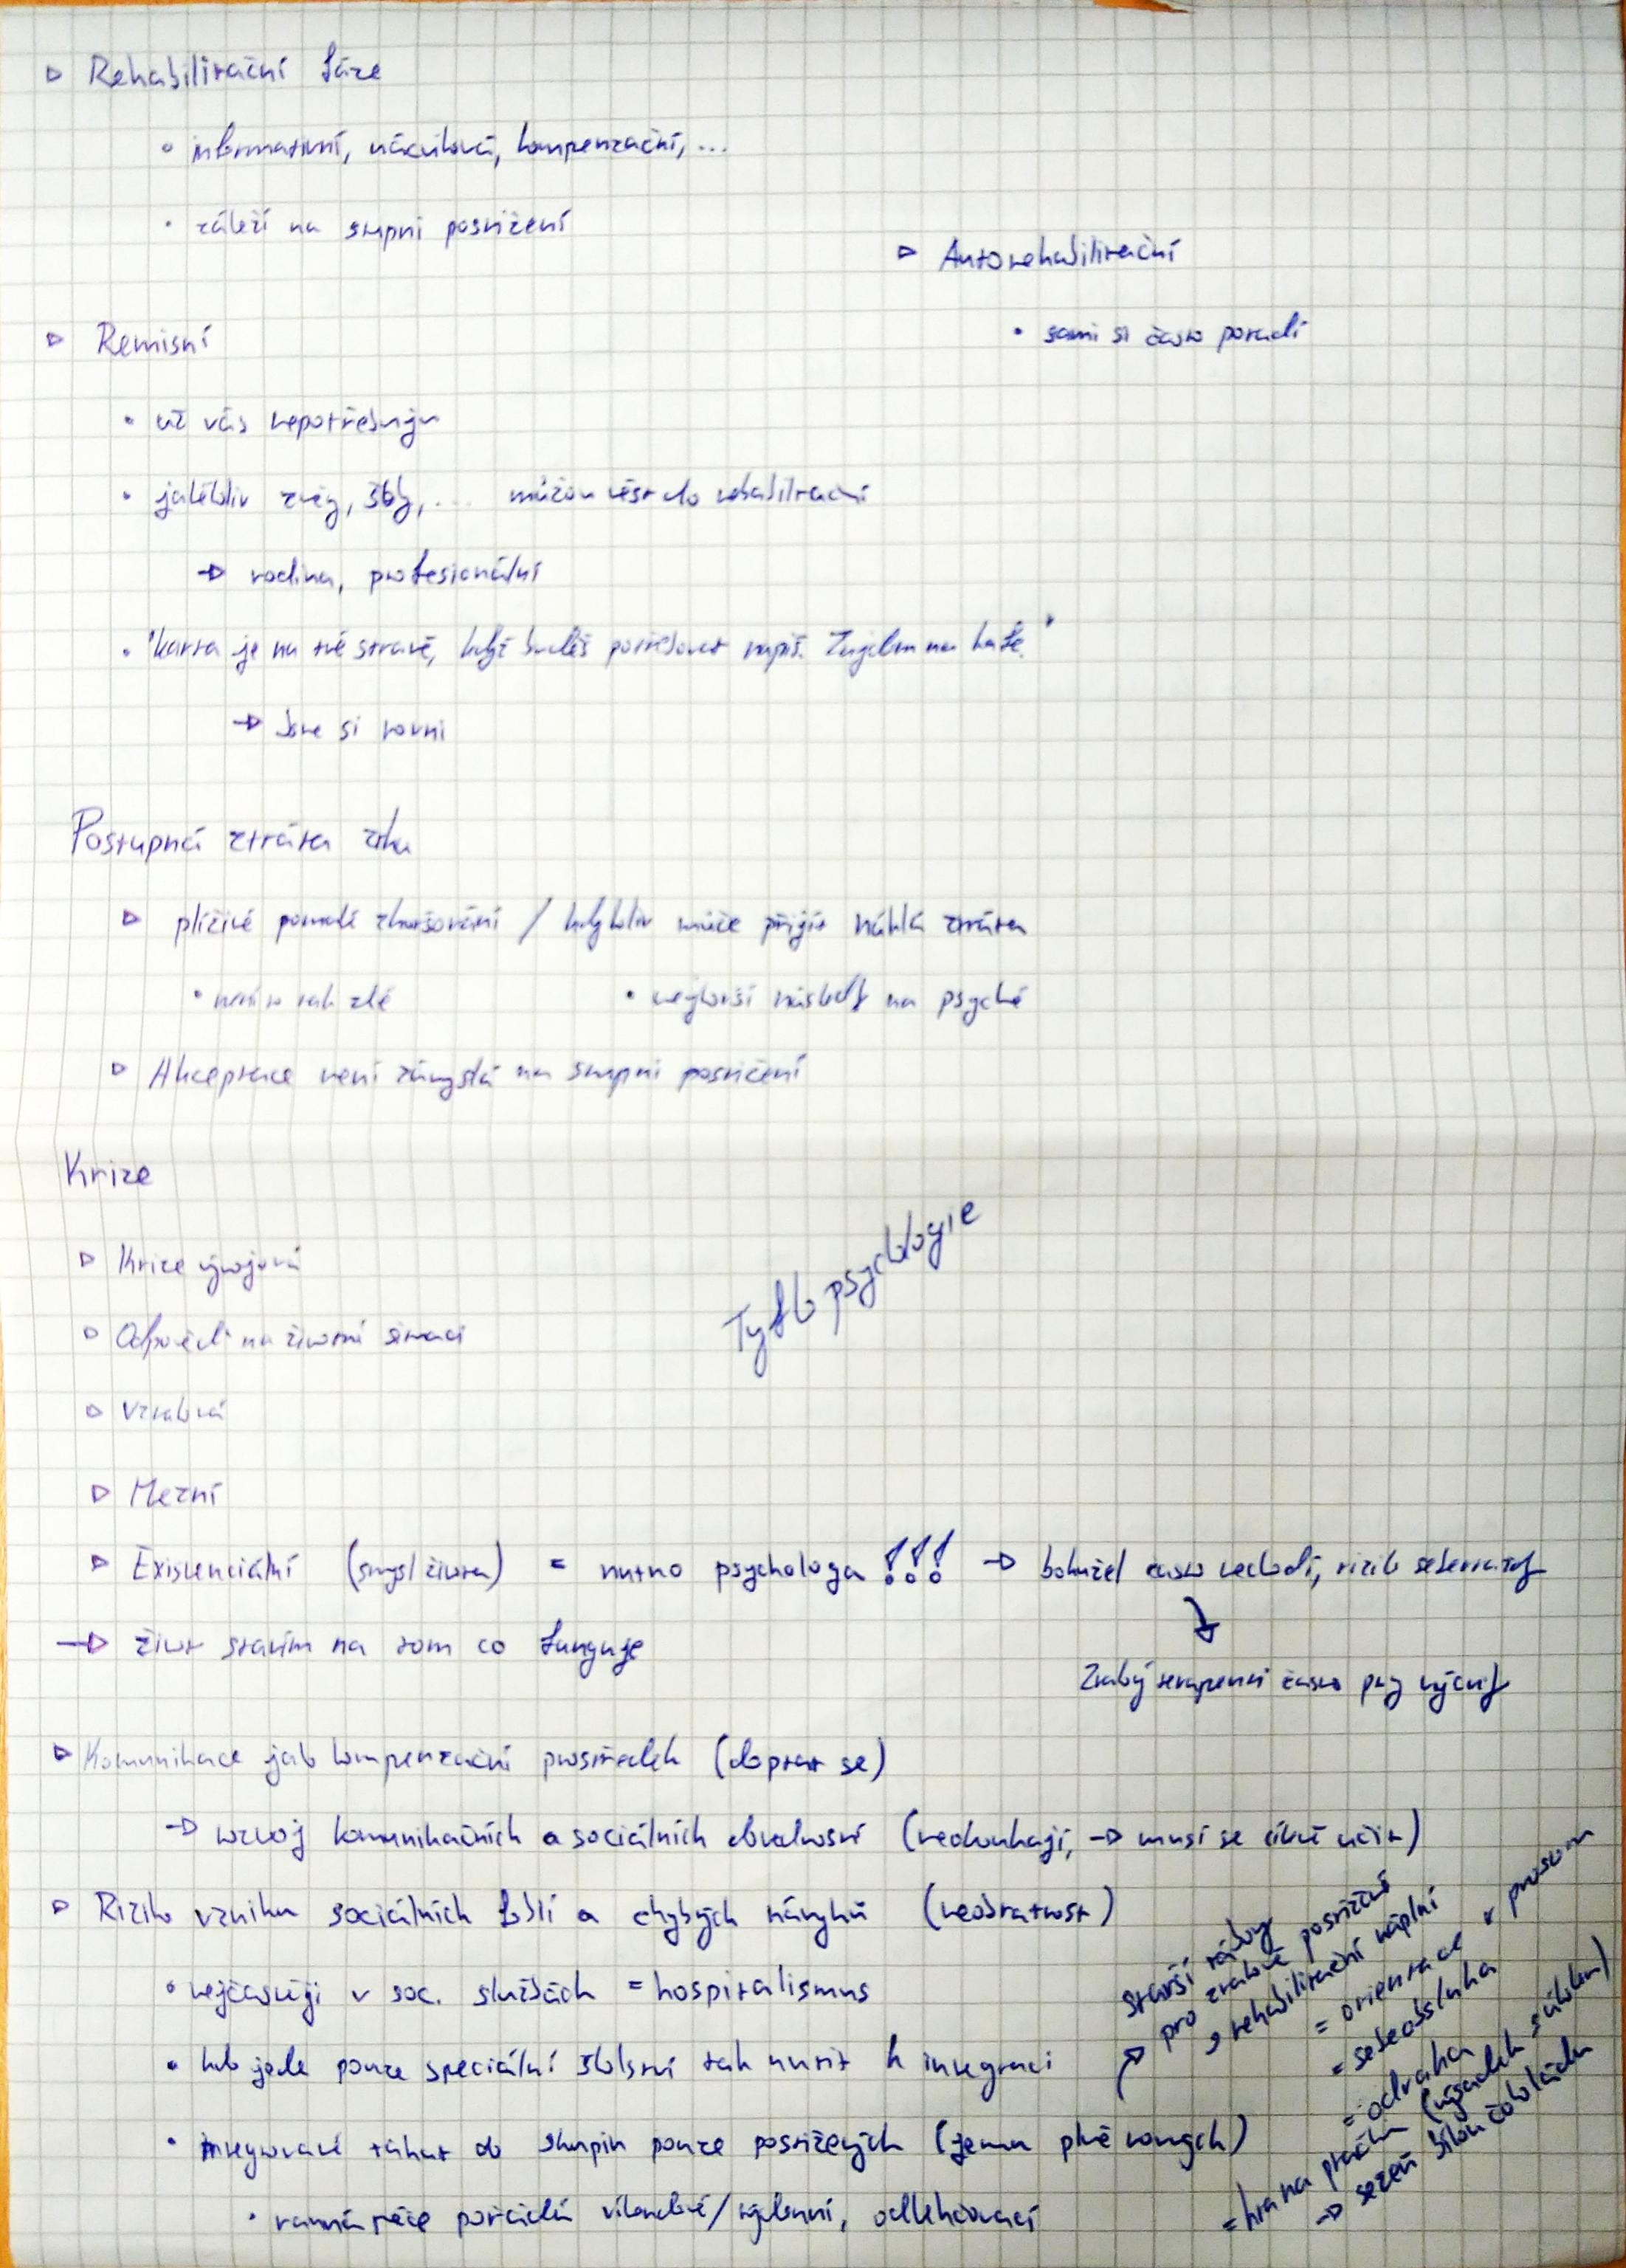 ▷ Rehabilitační fáze
• informativní, nácviková, kompenzační, ...
• záleží na stupni postižení
▷ Autorehabilitační
• sami si často poradí
▷ Remisní
• už vás nepotřebuju
• jakékoliv zvěg, šoky, ... můžou vést do rehabilitační
→ rodina, profesionální
• "karta je na tvé straně, když budeš potřebovat napiš. Zajdem na kafe."
→ Jsme si rovni
Postupná ztráta zraku
▷ plíživé pomalé zhoršování / kdykoliv může přijít náhlá ztráta
• není to tak zlé
• nejhorší následky na psyché
▷ Akceptace není závyslá na stupni postižení
Krize
▷ Krize vývojová
▷ Odpověď na životní situaci
▷ Vztahová
Tyflopsychologie
▷ Mezní
▷ Existenciální (smysl života) = nutno psychologa !!! → bohužel často nechodí, riziko sebevraždy
Zrakový terapeuti často psy výcviky
→ život stavím na tom co funguje
▷ Komunikace jako kompenzační prostředek (doptat se)
→ rozvoj komunikačních a sociálních dovedností (neokoukají, → musí se cíleně učit)
▷ Riziko vzniku sociálních fobií a chybných návyků (neobratnost)
• nejčastěji v soc. službách = hospitalismus
• kdo jede pouze speciální školství tak nutit k integraci
• integrované táhat do skupin pouze postižených (jemu plně rovných)
• ranná péče pořádá víkendové/týdenní, odlehčovací
starší tábory
pro zrakově postižené
s rehabilitační náplní
= orientace v prostoru
= sebeobsluha
= odvaha
= hra na ptačka (výsadek s úkolem)
→ sežeň bílou čokoládu